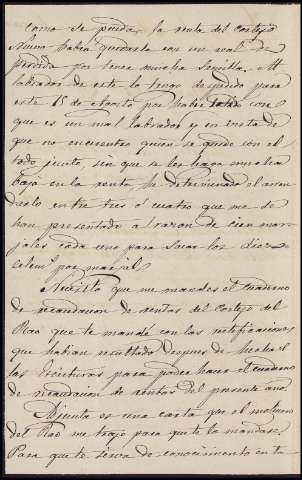 como se pueda, la renta del cortijo
Nuevo habrá quedarla con un real de
perdida por tener mucha semilla. Al
labrador de este lo tengo despedido para
este 15 de Agosto por haber
que es un mal labrador y en vista de
que no encuentro quien se quede con el
todo junto sin que se les haga mucha
baja en la renta, he determinado el arren-
darlo entre tres ó cuatro que me se
han presentado a razon de cien mar-
jales cada uno para sacar los diez
por marjal.
Necesito que me mandes el cuaderno
de recaudacion de rentas del Cortijo del
Rao que te mandé con las rectificaciones
que habian resultado despues de hechas
las escrituras para poder hacer el cuaderno
de recaudacion de rentas del presente año.
Adjunta es una carta que el molinero
del Rao me trajo para que te la mandase.
Para que te sirva de conocimiento en tu